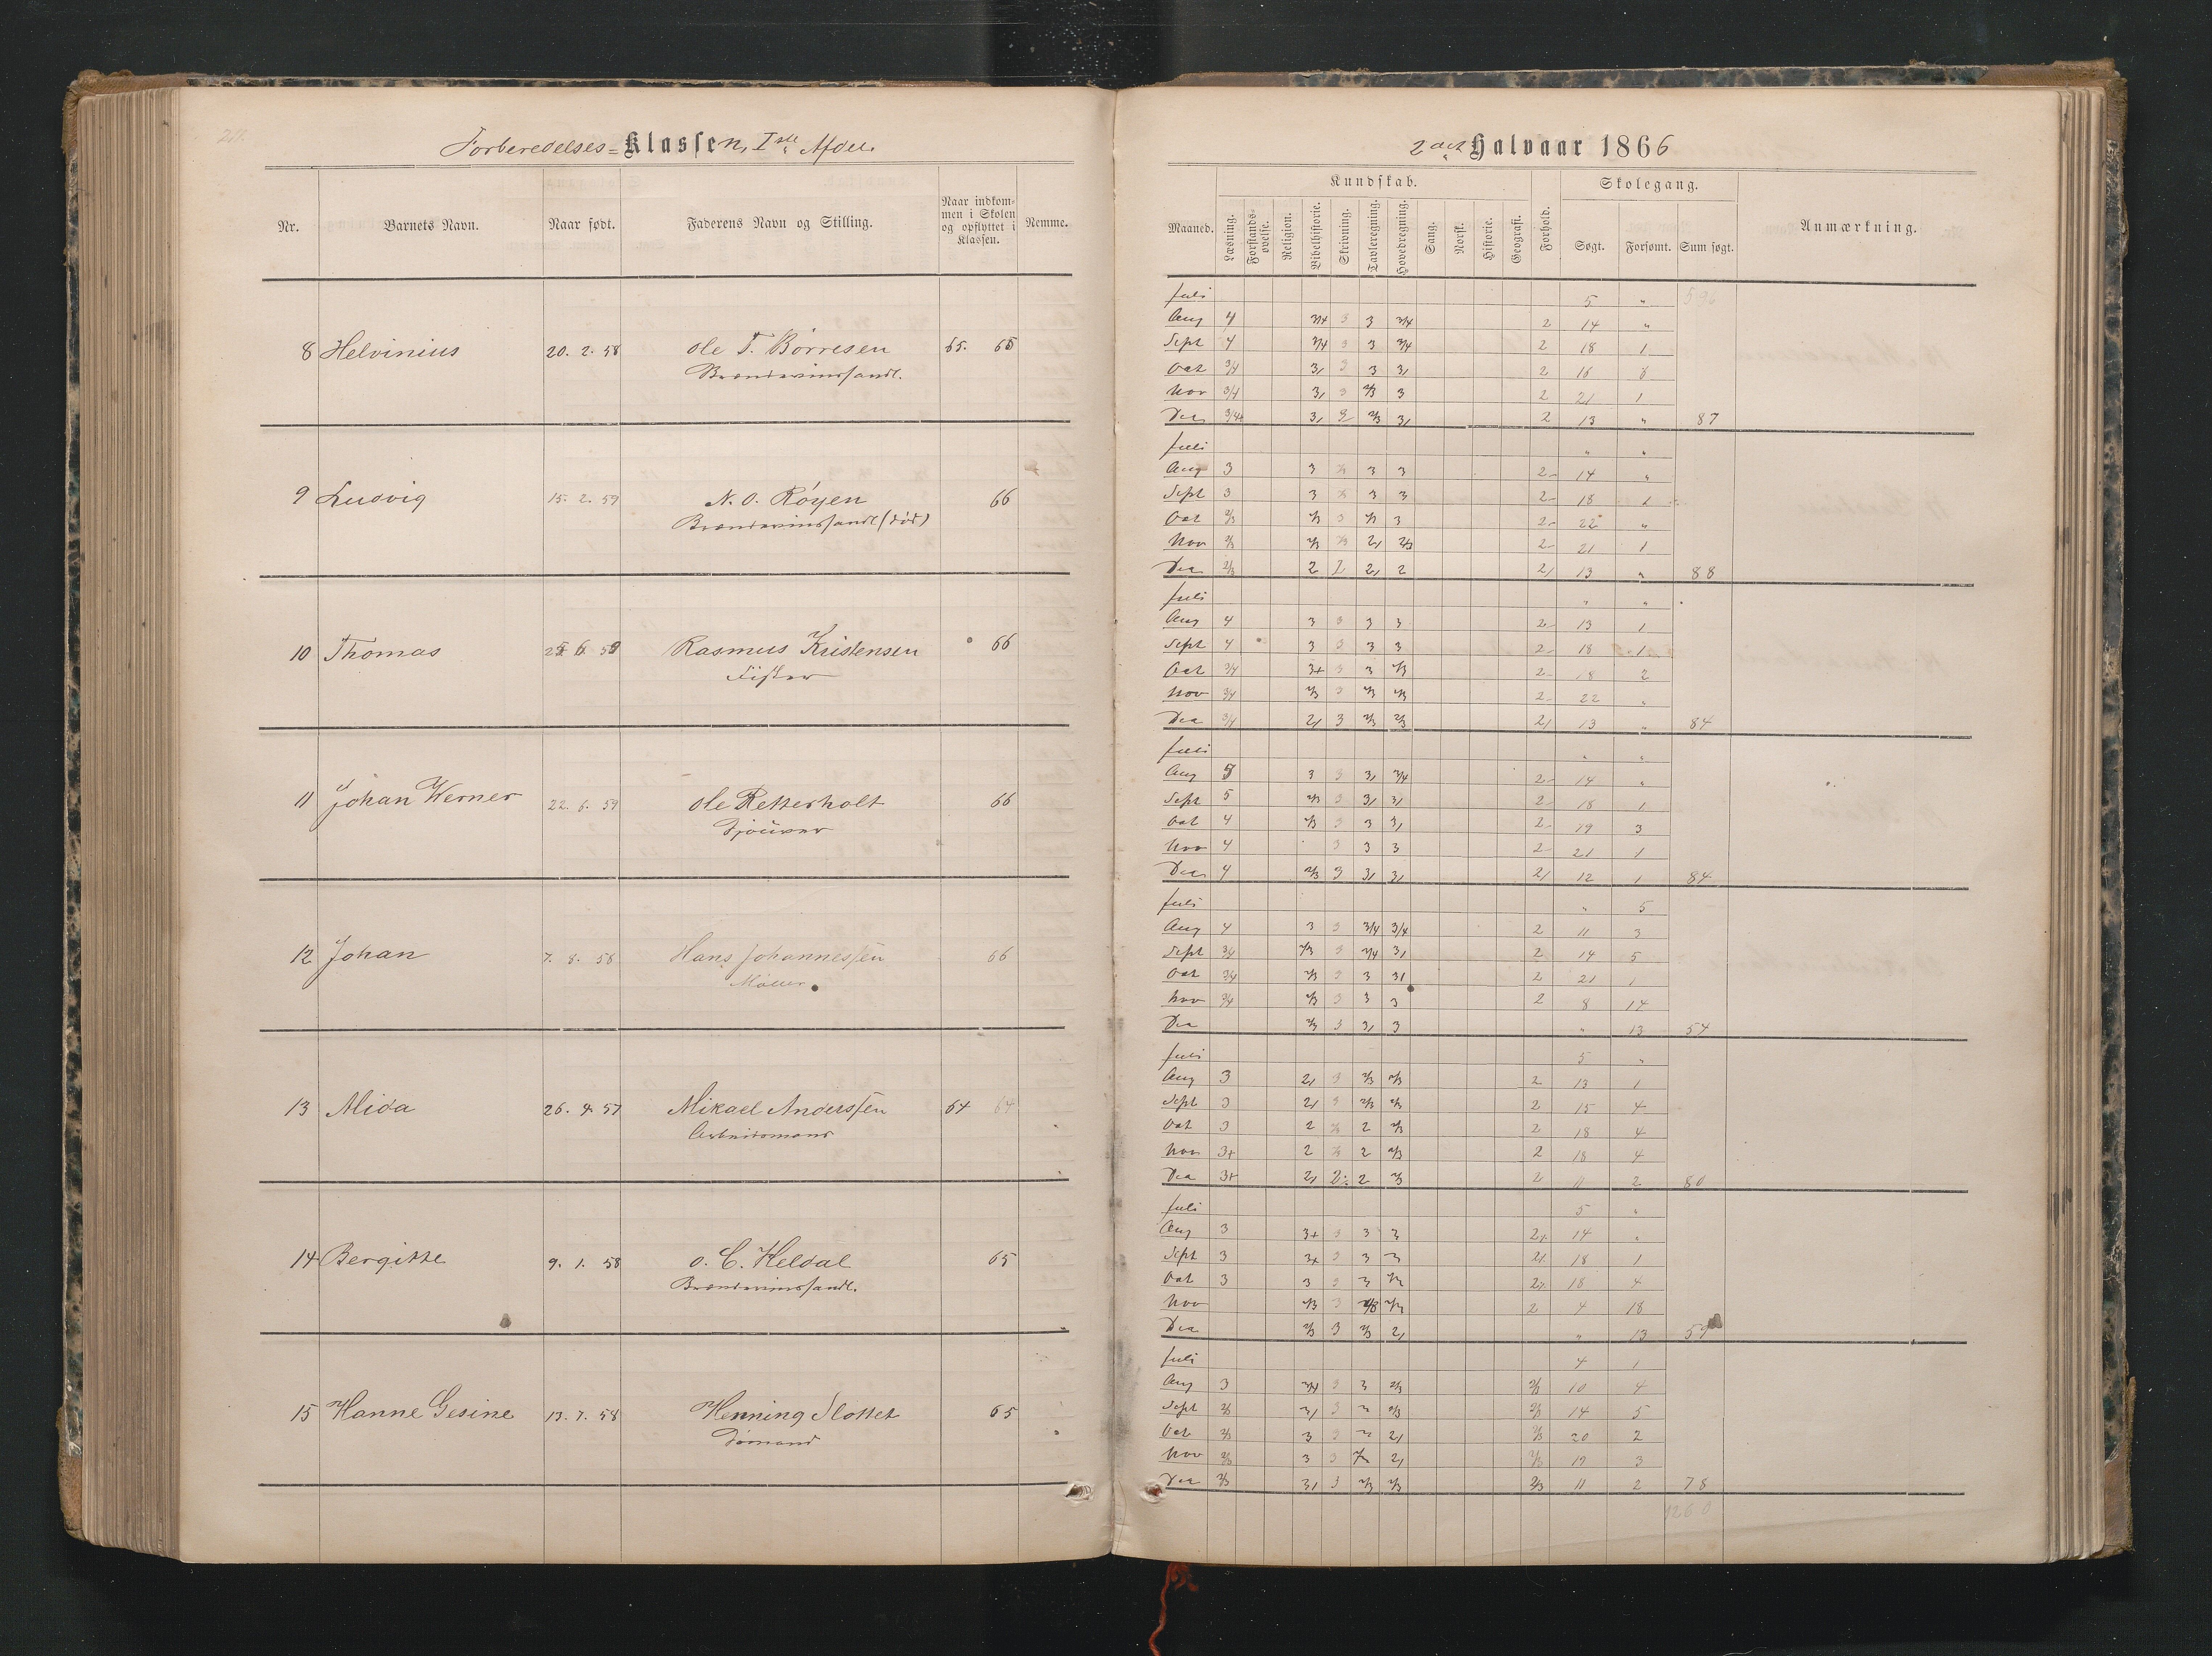 Forberedelses-Klassen, Iste Afdel.
Nr. Barnets Navn. Naar født. Faderens Navn og Stilling. Naar indkommen i Skolen og opflyttet i Klassen. Nemme.
8 Helvinius 20. 2. 58 Ole T. Børresen 65. 65
Brændevinshandl.
9 Ludvig 15. 2. 59 N. O. Røyen 66
Brændevinshandl (død)
10 Thomas Rasmus Kristensen 66
Fisker
11 Johan Werner 22. 6. 59 Ole Retterholt 66
12 Johan 7. 8. 58 Hans Johannessen 66
Møller
13 Alida 26. 4. 57 Mikael Anderssen 64 64
Arbeidsmand
14 Bergitte 9. 1. 58 O. C. Heldal 65
Brændevinshandl.
15 Hanne Gesine 13. 7. 58 Henning Slottet 65
Sømand
2det Halvaar 1866
Kundskab. Skolegang.
Maaned. Læsning. Forstandsøvelse. Religion. Bibelhistorie. Skrivning. Tavleregning. Hovedregning. Sang. Norsk. Historie. Geografi. Forhold. Søgt. Forsømt. Sum søgt. Anmærkning.
Juli 5 "
Aug 4 3/4 3 3 3/4 2 14 "
Sept 4 3/4 3 3 3/4 2 18 1
Oct 3/4 3, 3 3 3, 2 16 6
Nov 3/4 3, 3 2/3 3 2 21 1
Dec 3/4+ 3, 2 2/3 3, 2 13 " 87
Juli " "
Aug 3 3 3 3 2- 14 "
Sept 3 3 3 3 2- 18 1
Oct 2/3 2/3 3 2/3 3 2- 22 "
Nov 2/3 2/3 2, 2/3 2- 21 1
Dec 2/3 2 2 2, 2 2, 13 " 88
Juli " "
Aug 4 3 3 3 3 2- 13 1
Sept 4 3 3 3 3 2- 18 1
Oct 3/4 3+ 3 3 2/3 2- 18 2
Nov 3/4 2/3 3 2/3 2/3 2- 22 "
Dec 3/4 2, 3 2/3 2/3 2, 13 " 84
Juli " "
Aug 5 3 3 3, 3/4 2- 14 "
Sept 5 2/3 3 3, 3, 2- 18 1
Oct 4 2/3 3 3 3, 2- 19 3
Nov 4 3 3 3 2- 21 1
Dec 4 2/3 3 3, 3, 2, 12 1 84
Juli " 5
Aug 4 3 3 3/4 3/4 2 11 3
Sept 3/4 2/3 3 3/4 3, 2 14 5
Oct 3/4 2/3 3 3 3, 2 21 1
Nov 3/4 2/3 3 3 3 2 8 14
Dec 2/3 3 3, 3 " 13 54
Juli 5 "
Aug 3 2, 3 2/3 2/3 2 13 1
Sept 3 2, 3 2/3 2/3 2 15 4
Oct 3 2 2 2/3 2 18 4
Nov 3+ 2 2 2/3 2 18 4
Dec 3+ 2, 2 2 2/3 2 11 2 80
Juli 5 "
Aug 3 3+ 3 3 3 2+ 14 "
Sept 3 3+ 3 3 3 2, 18 1
Oct 3 3 3 3 2/3 18 4
Nov 2/3 3 2/3 2/3 2 4 18
Dec 2/3 3 2/3 2, " 13 59
Juli 4 1
Aug 3 3/4 3 3 2/3 2/3 10 4
Sept 2/3 3, 3 3 2/3 2/3 14 5
Oct 2/3 3 3 3 2, 2/3 20 2
Nov 2/3 3 3 2, 2/3 19 3
Dec 2/3 3, 3 2/3 2/3 2/3 11 2 78
1260